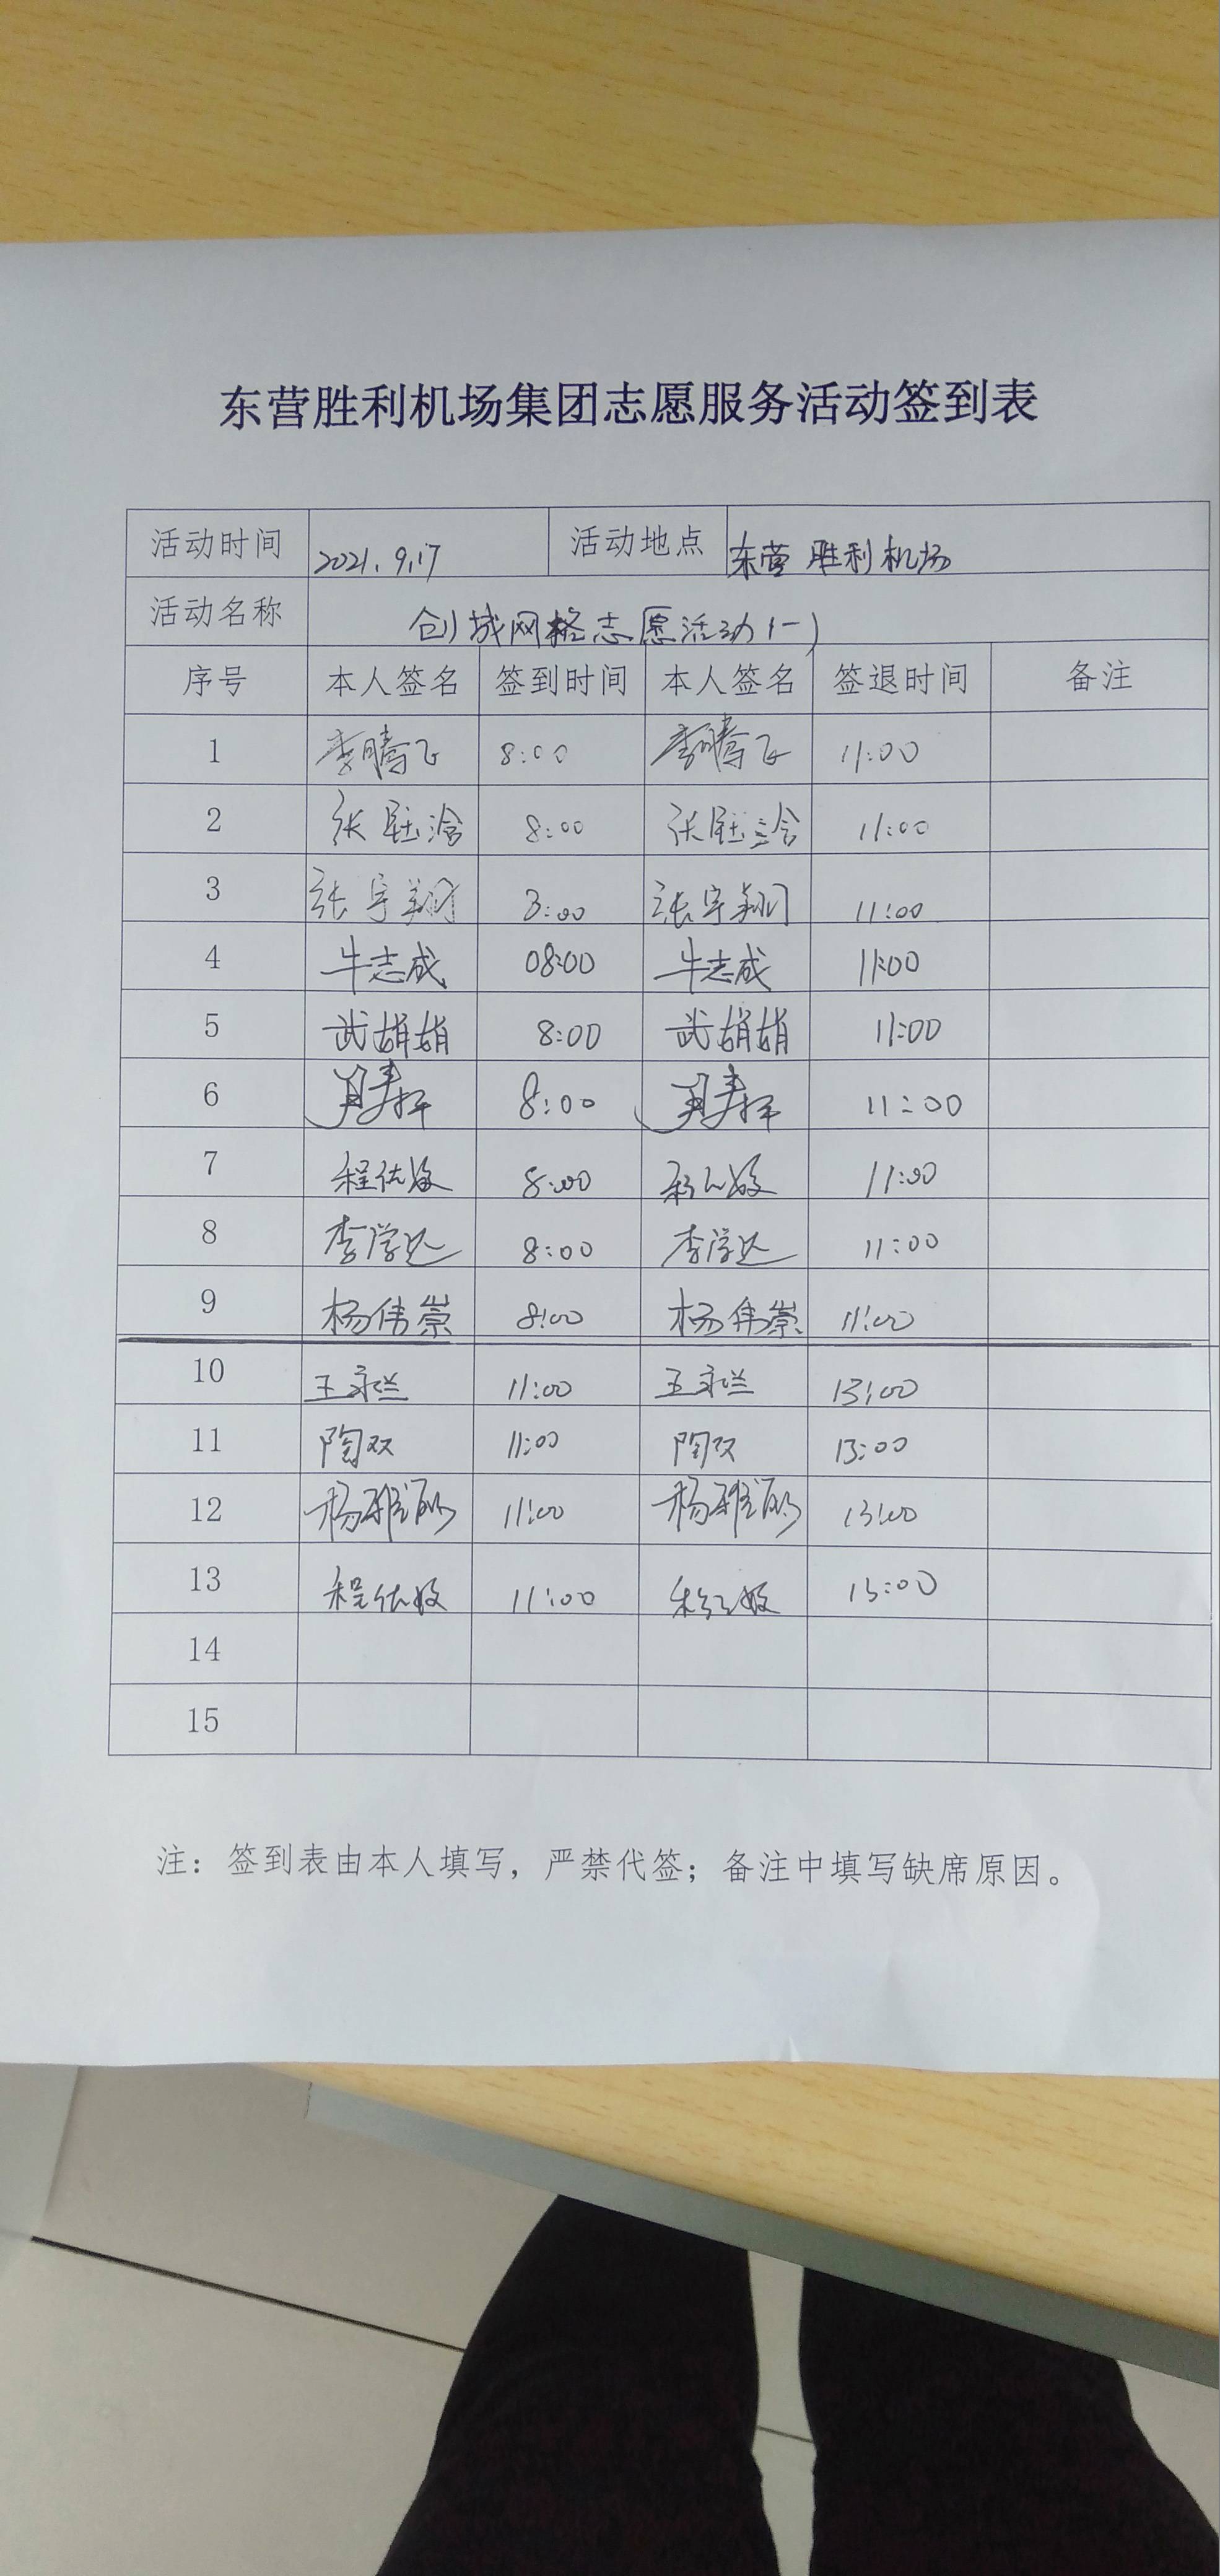 东营胜利机场集团志愿服务活动签到表
活动时间 2021.9.17 活动地点 东营胜利机场
活动名称 创城网格志愿活动(一)
序号 本人签名 签到时间 本人签名 签退时间 备注
1 李腾飞 8:00 李腾飞 11:00
2 张钰浛 8:00 张钰浛 11:00
3 张宇翔 8:00 张宇翔 11:00
4 牛志成 08:00 牛志成 11:00
5 武娟娟 8:00 武娟娟 11:00
6 8:00 11:00
7 程依 8:00 11:00
8 李学达 8:00 李学达 11:00
9 杨伟崇 8:00 杨伟崇 11:00
10 王 11:00 王 13:00
11 陶双 11:00 陶双 13:00
12 杨雅 11:00 杨雅 13:00
13 程依 11:00 13:00
14
15
注：签到表由本人填写，严禁代签；备注中填写缺席原因。